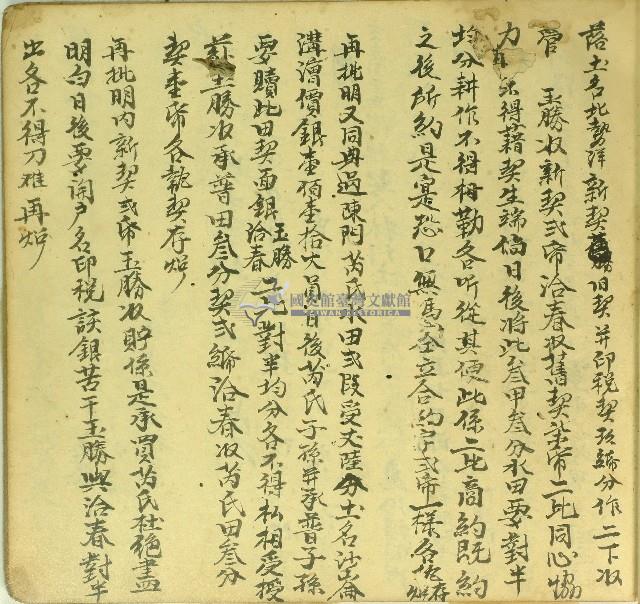 落土名北勢洋新契舊契并印稅契孜締分作二下収
管玉勝収新契弍帋洽春収舊契叁帋二比同心協
力不得藉契生端倘日後將此叁甲叁分水田要對半
均分耕作不得相勒各听從其便此係二比商約既約
之後所約是寔恐口無馮仝立合約字弍帋一樣各執存炤
再批明又同典過陳門芮氏水田弍段受丈陸分土名沙崙
溝漕價銀壹佰壹拾大員日後芮氏子孫并承普子孫
要贖此田契面銀玉勝洽春二比對半均分各不得私相受授
玉勝収承普田叁分契弍締洽春収芮氏田叁分
契壹帋各執契存炉
再批明內新契弍帋玉勝収貯係是承買芮氏杜絕盡
明白日後要開戶名印稅該銀若干玉勝與洽春對半
出各不得刁难再炉
國史館臺灣文獻館
TAIWAN HISTORICA